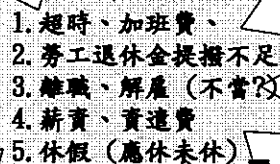 1.超時、加班費、
2.勞工退休金提撥不足
3.離職、解雇（不當?）
4.薪資、資遣費
5.休假（應休未休）